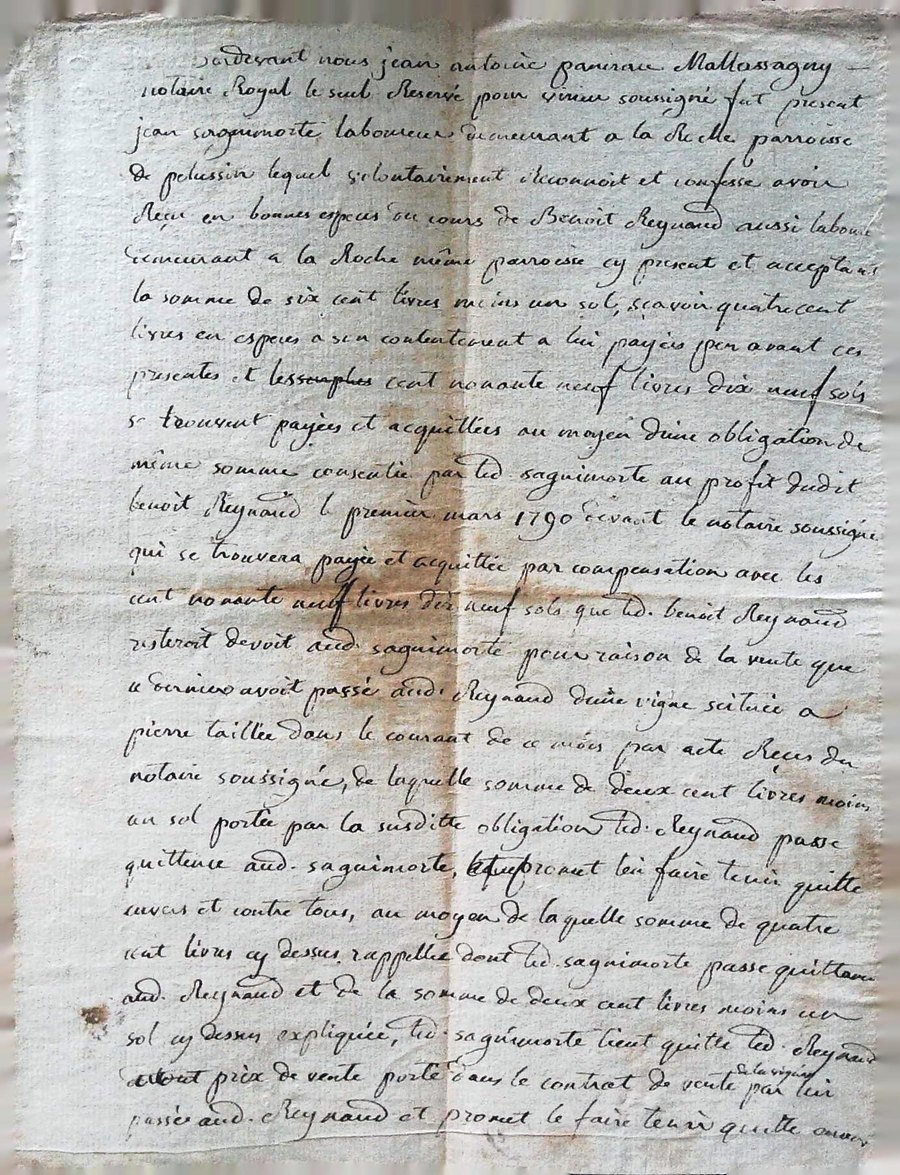 Pardevant nous jean antoine pancrace Mallassagny
notaire Royal le seul Reservé pour virieu soussigné fut present
jean saguimorte laboureur demeurant a la Roche parroisse
de pelussin lequel volontairement Reconnoit et confesse avoir
Reçu en bonnes especes au cours de Benoit Reynaud aussi laboureur
demeurant a la Roche même parroisse cy present et acceptant
la somme de six cent livres moins un sol, scavoir quatre cent
livres en especes a son contentement a lui payées par avant ces
presentes et les cent nonante neuf livres dix neuf sols
se trouvent payées et acquittées au moyen d'une obligation de
même somme consentie par led. saguimorte au profit dudit
benoit Reynaud le premier mars 1790 devant le notaire soussigné
qui se trouvera payée et acquittée par compensation avec les
cent nonante neuf livres dix neuf sols que led. benoit Reynaud
resteroit devoit aud. saguimorte pour raison de la vente que
ce dernier avoit passée aud. Reynaud d'une vigne scituée a
pierre taillée dans le courant de ce mois par acte Reçus du
notaire soussigné, de laquelle somme de deux cent livres moins
un sol portée par la susditte obligation led. Reynaud passe
quittence aud. saguimorte, promet l'en faire tenir quitte
envers et contre tous, au moyen de laquelle somme de quatre
cent livres cy dessus rappellée dont led. saguimorte passe quittance
aud. Reynaud et de la somme de deux cent livres moins un
sol cy dessus expliquée, led. saguimorte tient quitte led. Reynaud
du tout prix de vente porté dans le contrat de vente de la vigne par lui
passée aud. Reynaud et promet le faire tenir quitte envers